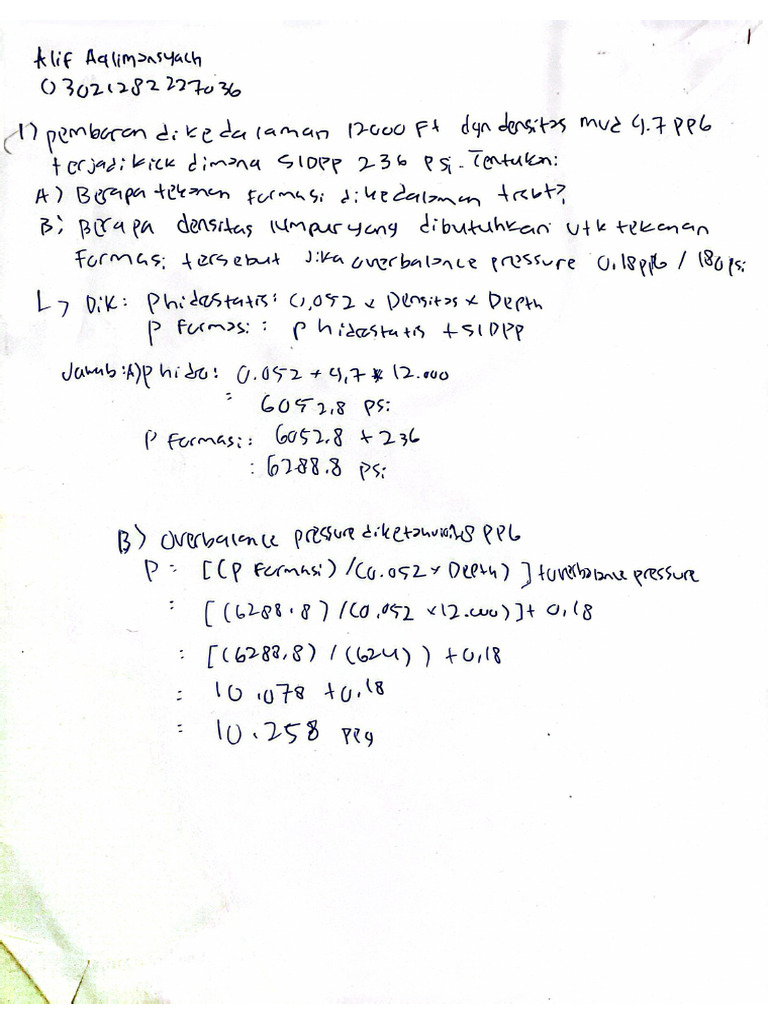 1
Alif Aqlimansyach
03021282227036
1) pemboran di kedalaman 12000 Ft dgn densitas mud 9.7 PPG
terjadi kick dimana SIDPP 236 Psi. Tentukan:
A) Berapa tekanan formasi di kedalaman trsbt?
B) Berapa densitas lumpur yang dibutuhkan utk tekanan
Formasi tersebut Jika overbalance pressure 0.18 ppg / 180 psi
L> Dik: Phidostatis: 0,052 x Densitas x Depth
P Formasi: P hidostatis + SIDPP
Jawab: A) P hido: 0.052 + 9,7 x 12.000
= 6052,8 Psi
P Formasi: 6052.8 + 236
: 6288.8 Psi
B) Overbalance pressure diketahui 0.18 PPG
P = [(P Formasi) / (0.052 x Depth)] + overbalance pressure
= [(6288.8) / (0.052 x 12.000)] + 0,18
: [(6288,8) / (624)) + 0,18
= 10.078 + 0,18
= 10.258 ppg